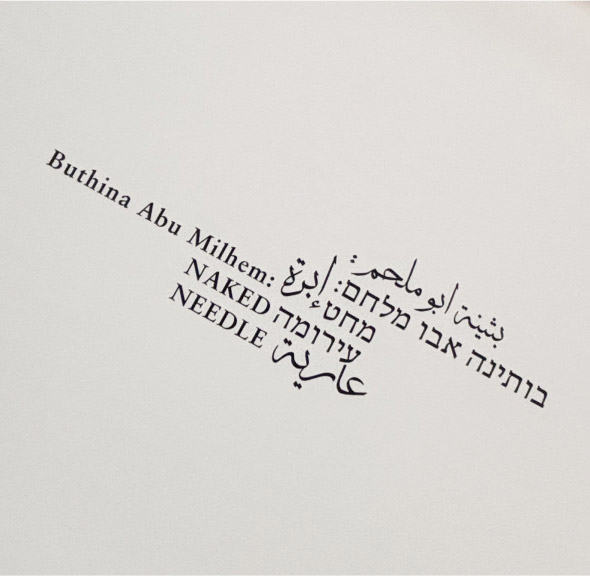 بثينة ابو ملحم:
Buthina Abu Milhem: إبرة בותינה אבו מלחם:
NAKED מחט
NEEDLE עירומה
عارية